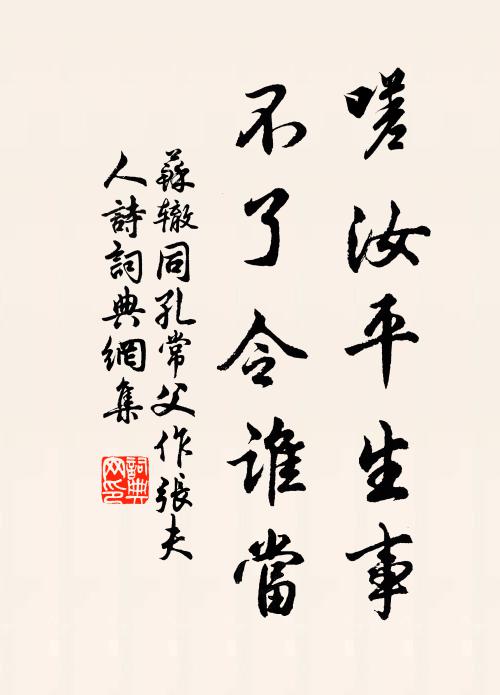 嗟汝平生事
不了令谁當
蘇辙同孔常父作張夫
人詩詞典網集
詞典
网印